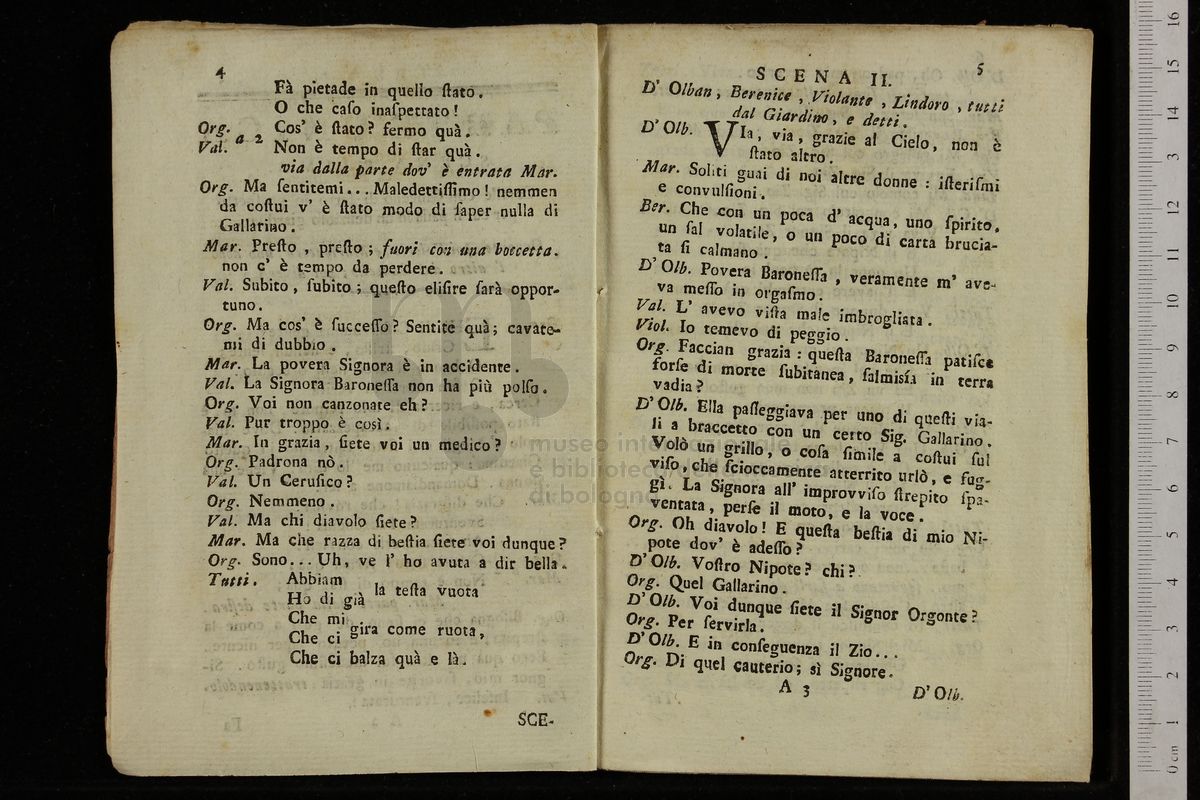 4
Fà pietade in quello ſtato.
O che caſo inaſpettato!
Org. a 2 Cos' è ſtato? fermo quà.
Val. Non è tempo di ſtar quà.
via dalla parte dov' è entrata Mar.
Org. Ma ſentitemi... Maledettiſſimo! nemmen
da coſtui v' è ſtato modo di ſaper nulla di
Gallarino.
Mar. Preſto , preſto ; fuori con una boccetta.
non c' è tempo da perdere.
Val. Subito , ſubito ; queſto eliſire ſarà oppor-
tuno.
Org. Ma cos' è ſucceſſo? Sentite quà; cavate-
mi di dubbio .
Mar. La povera Signora è in accidente.
Val. La Signora Baroneſſa non ha più polſo.
Org. Voi non canzonate eh?
Val. Pur troppo è così.
Mar. In grazia, ſiete voi un medico?
Org. Padrona nò.
Val. Un Ceruſico?
Org. Nemmeno.
Val. Ma chi diavolo ſiete?
Mar. Ma che razza di beſtia ſiete voi dunque?
Org. Sono... Uh, ve l' ho avuta a dir bella.
Tutti. Abbiam
Ho di già la teſta vuota
Che mi
Che ci gira come ruota,
Che ci balza quà e là.
SCE-
5
SCENA II.
D' Olban , Berenice , Violante , Lindoro , tutti
dal Giardino, e detti.
D' Olb. VIa, via, grazie al Cielo, non è
ſtato altro.
Mar. Soliti guai di noi altre donne : iſteriſmi
e convulſioni.
Ber. Che con un poca d' acqua, uno ſpirito,
un ſal volatile, o un poco di carta brucia-
ta ſi calmano .
D' Olb. Povera Baroneſſa , veramente m' ave-
va meſſo in orgaſmo.
Val. L' avevo viſta male imbrogliata .
Viol. Io temevo di peggio .
Org. Faccian grazia : queſta Baroneſſa patiſce
forſe di morte ſubitanea, ſalmisía in terra
vadia?
D' Olb. Ella paſſeggiava per uno di queſti via-
li a braccetto con un certo Sig. Gallarino.
Volò un grillo, o coſa ſimile a coſtui ſul
viſo, che ſcioccamente atterrito urlò, e fug-
gì. La Signora all' improvviſo ſtrepito ſpa-
ventata, perſe il moto, e la voce.
Org. Oh diavolo! E queſta beſtia di mio Ni-
pote dov' è adeſſo?
D' Olb. Voſtro Nipote? chi?
Org. Quel Gallarino.
D' Olb. Voi dunque ſiete il Signor Orgonte?
Org. Per ſervirla.
D' Olb. E in conſeguenza il Zio...
Org. Di quel cauterio; sì Signore.
A 3 D' Olb.
museo internazionale
e biblioteca
di bologna
0 cm 1 2 3 4 5 6 7 8 9 10 11 12 13 14 15 16